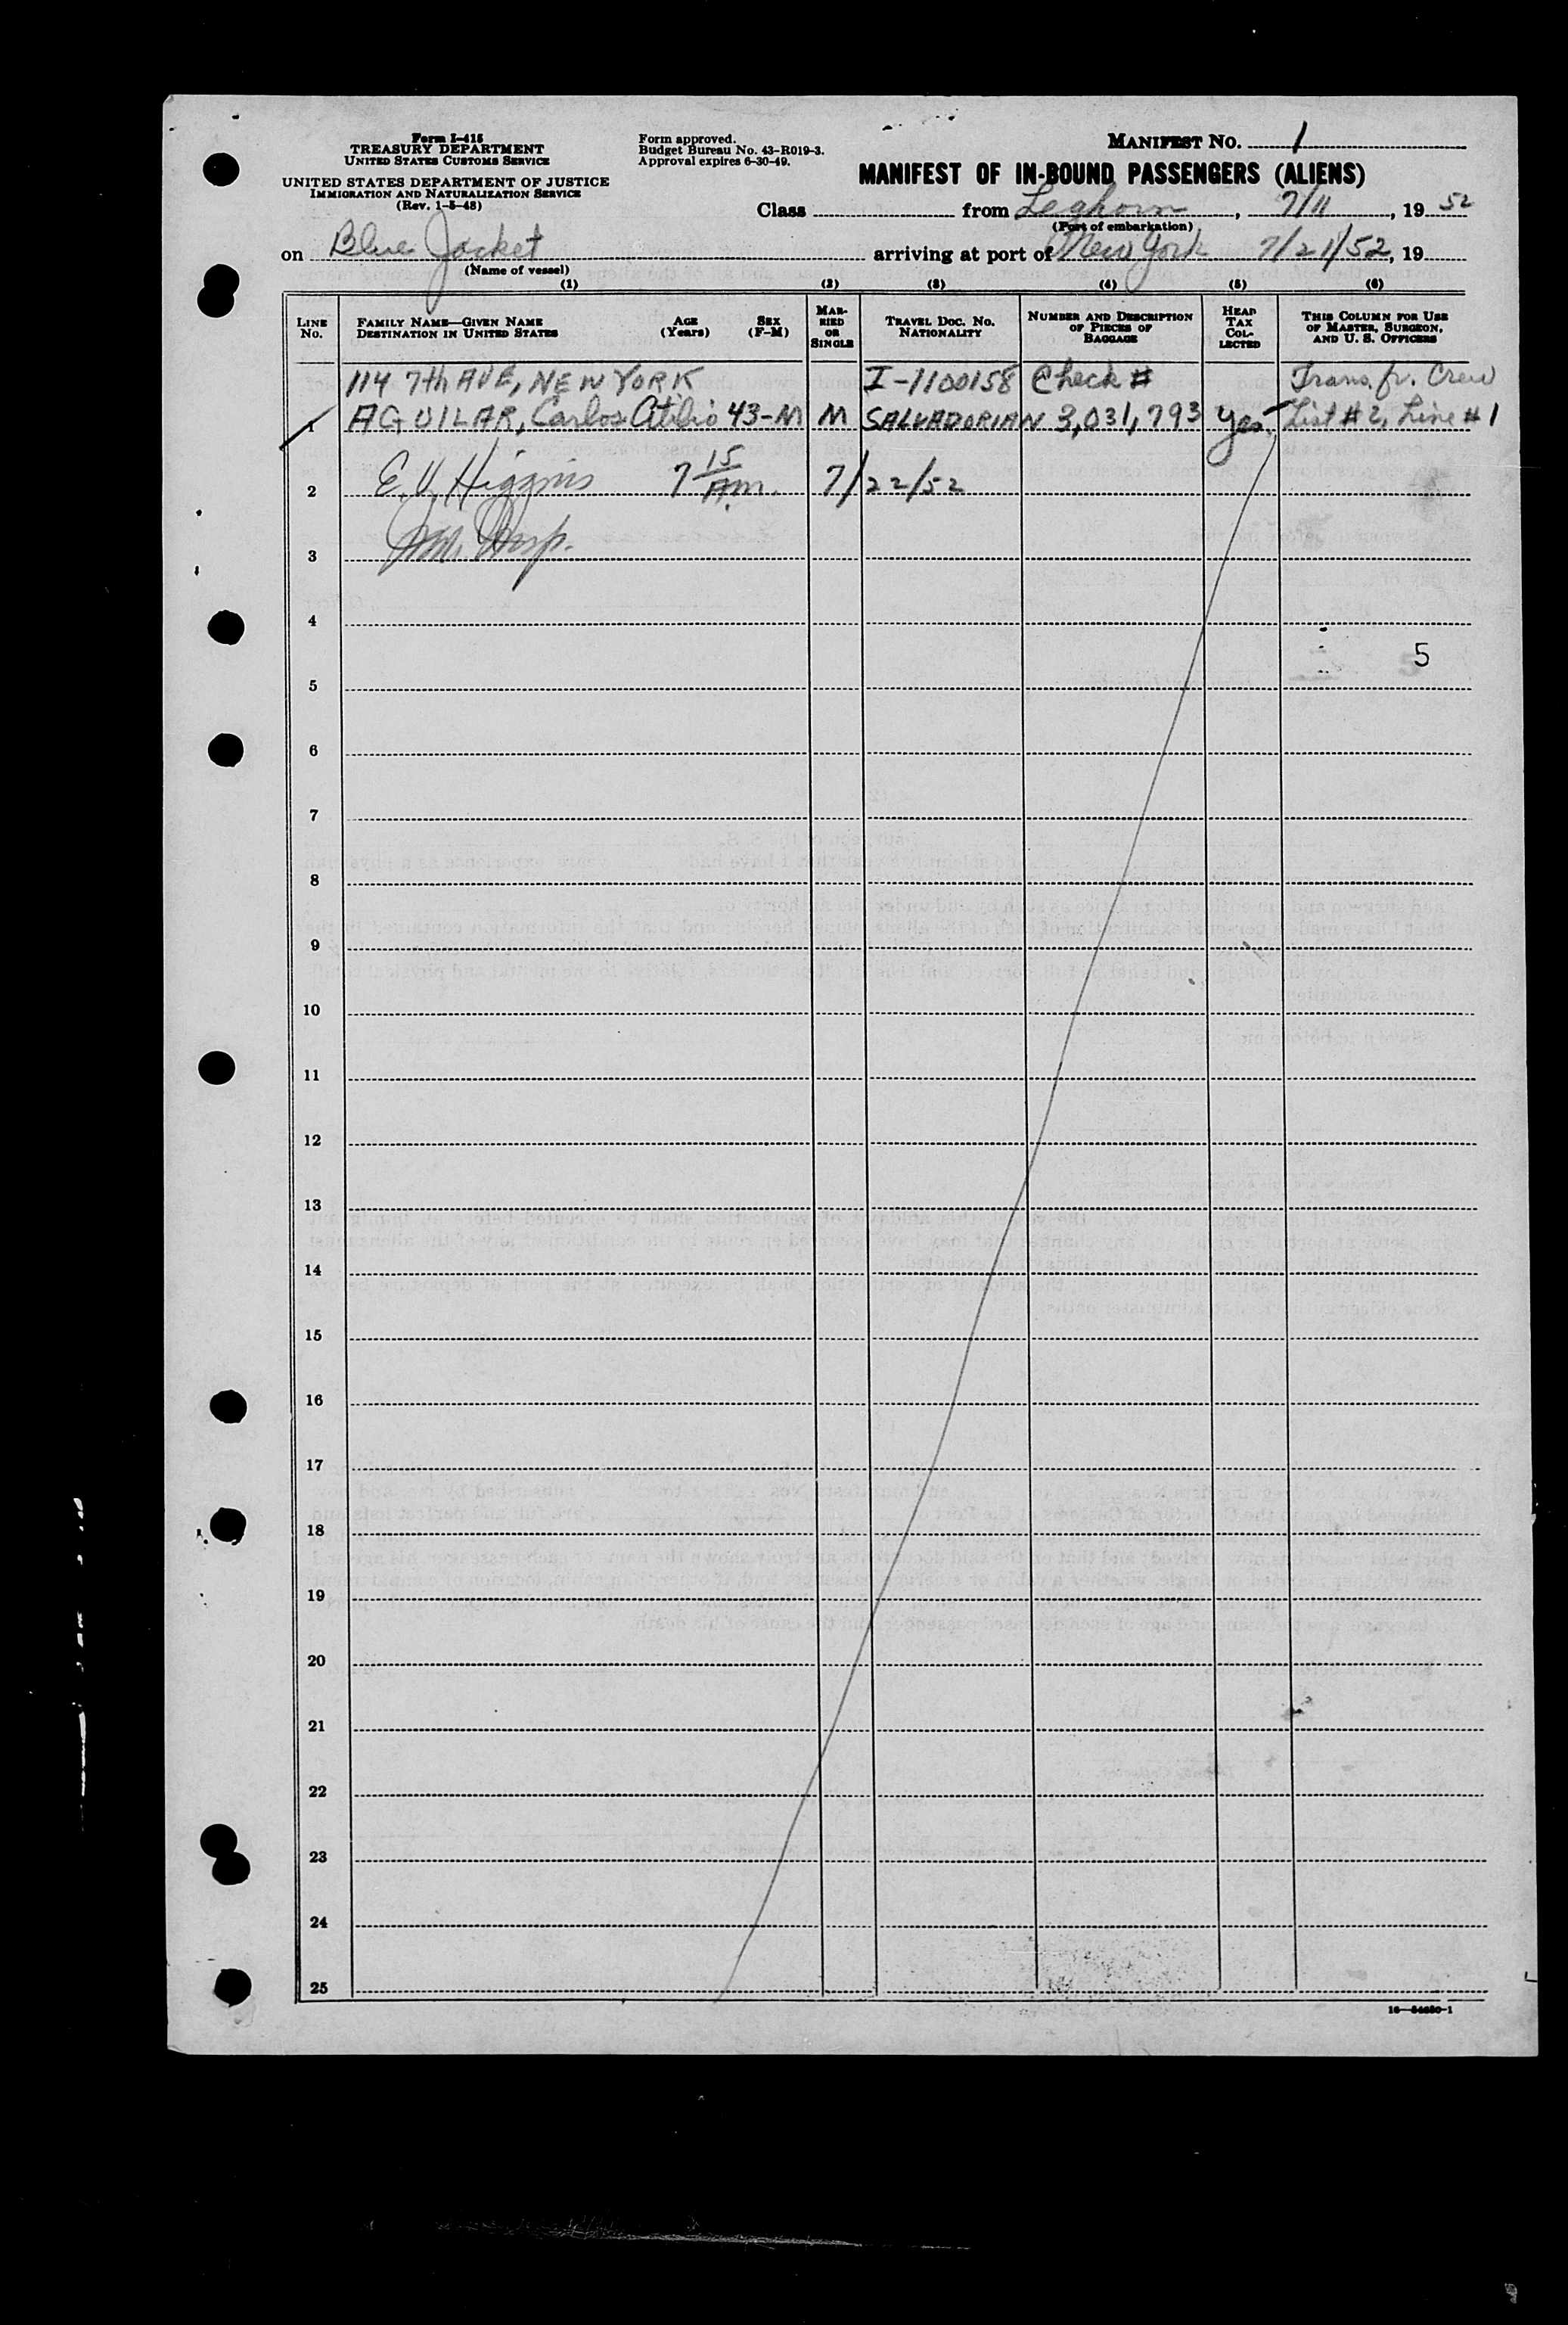 Form I-415
TREASURY DEPARTMENT
UNITED STATES CUSTOMS SERVICE
UNITED STATES DEPARTMENT OF JUSTICE
IMMIGRATION AND NATURALIZATION SERVICE
(Rev. 1-5-48)
Form approved.
Budget Bureau No. 43-R019-3.
Approval expires 6-30-49.
MANIFEST NO. 1
MANIFEST OF IN-BOUND PASSENGERS (ALIENS)
Class from Leghorn, 7/11, 19 52
(Port of embarkation)
on Blue Jacket arriving at port of New York 7/21/52, 19
(Name of vessel)
(1) (2) (3) (4) (5) (6)
LINE No.
FAMILY NAME—GIVEN NAME
DESTINATION IN UNITED STATES
AGE (Years)
SEX (F-M)
MARRIED OR SINGLE
TRAVEL DOC. NO.
NATIONALITY
NUMBER AND DESCRIPTION OF PIECES OF BAGGAGE
HEAD TAX COLLECTED
THIS COLUMN FOR USE OF MASTER, SURGEON, AND U. S. OFFICERS
114 7th AVE, NEW YORK I-1100158 Check # Trans. fr. Crew
1 AGUILAR, Carlos Atilio 43-M M SALVADORIAN 3,031,793 Yes List #2, Line #1
2 E. V. Higgins 7 15 A.m. 7/22/52
3 Insp.
4
5
5
6
7
8
9
10
11
12
13
14
15
16
17
18
19
20
21
22
23
24
25